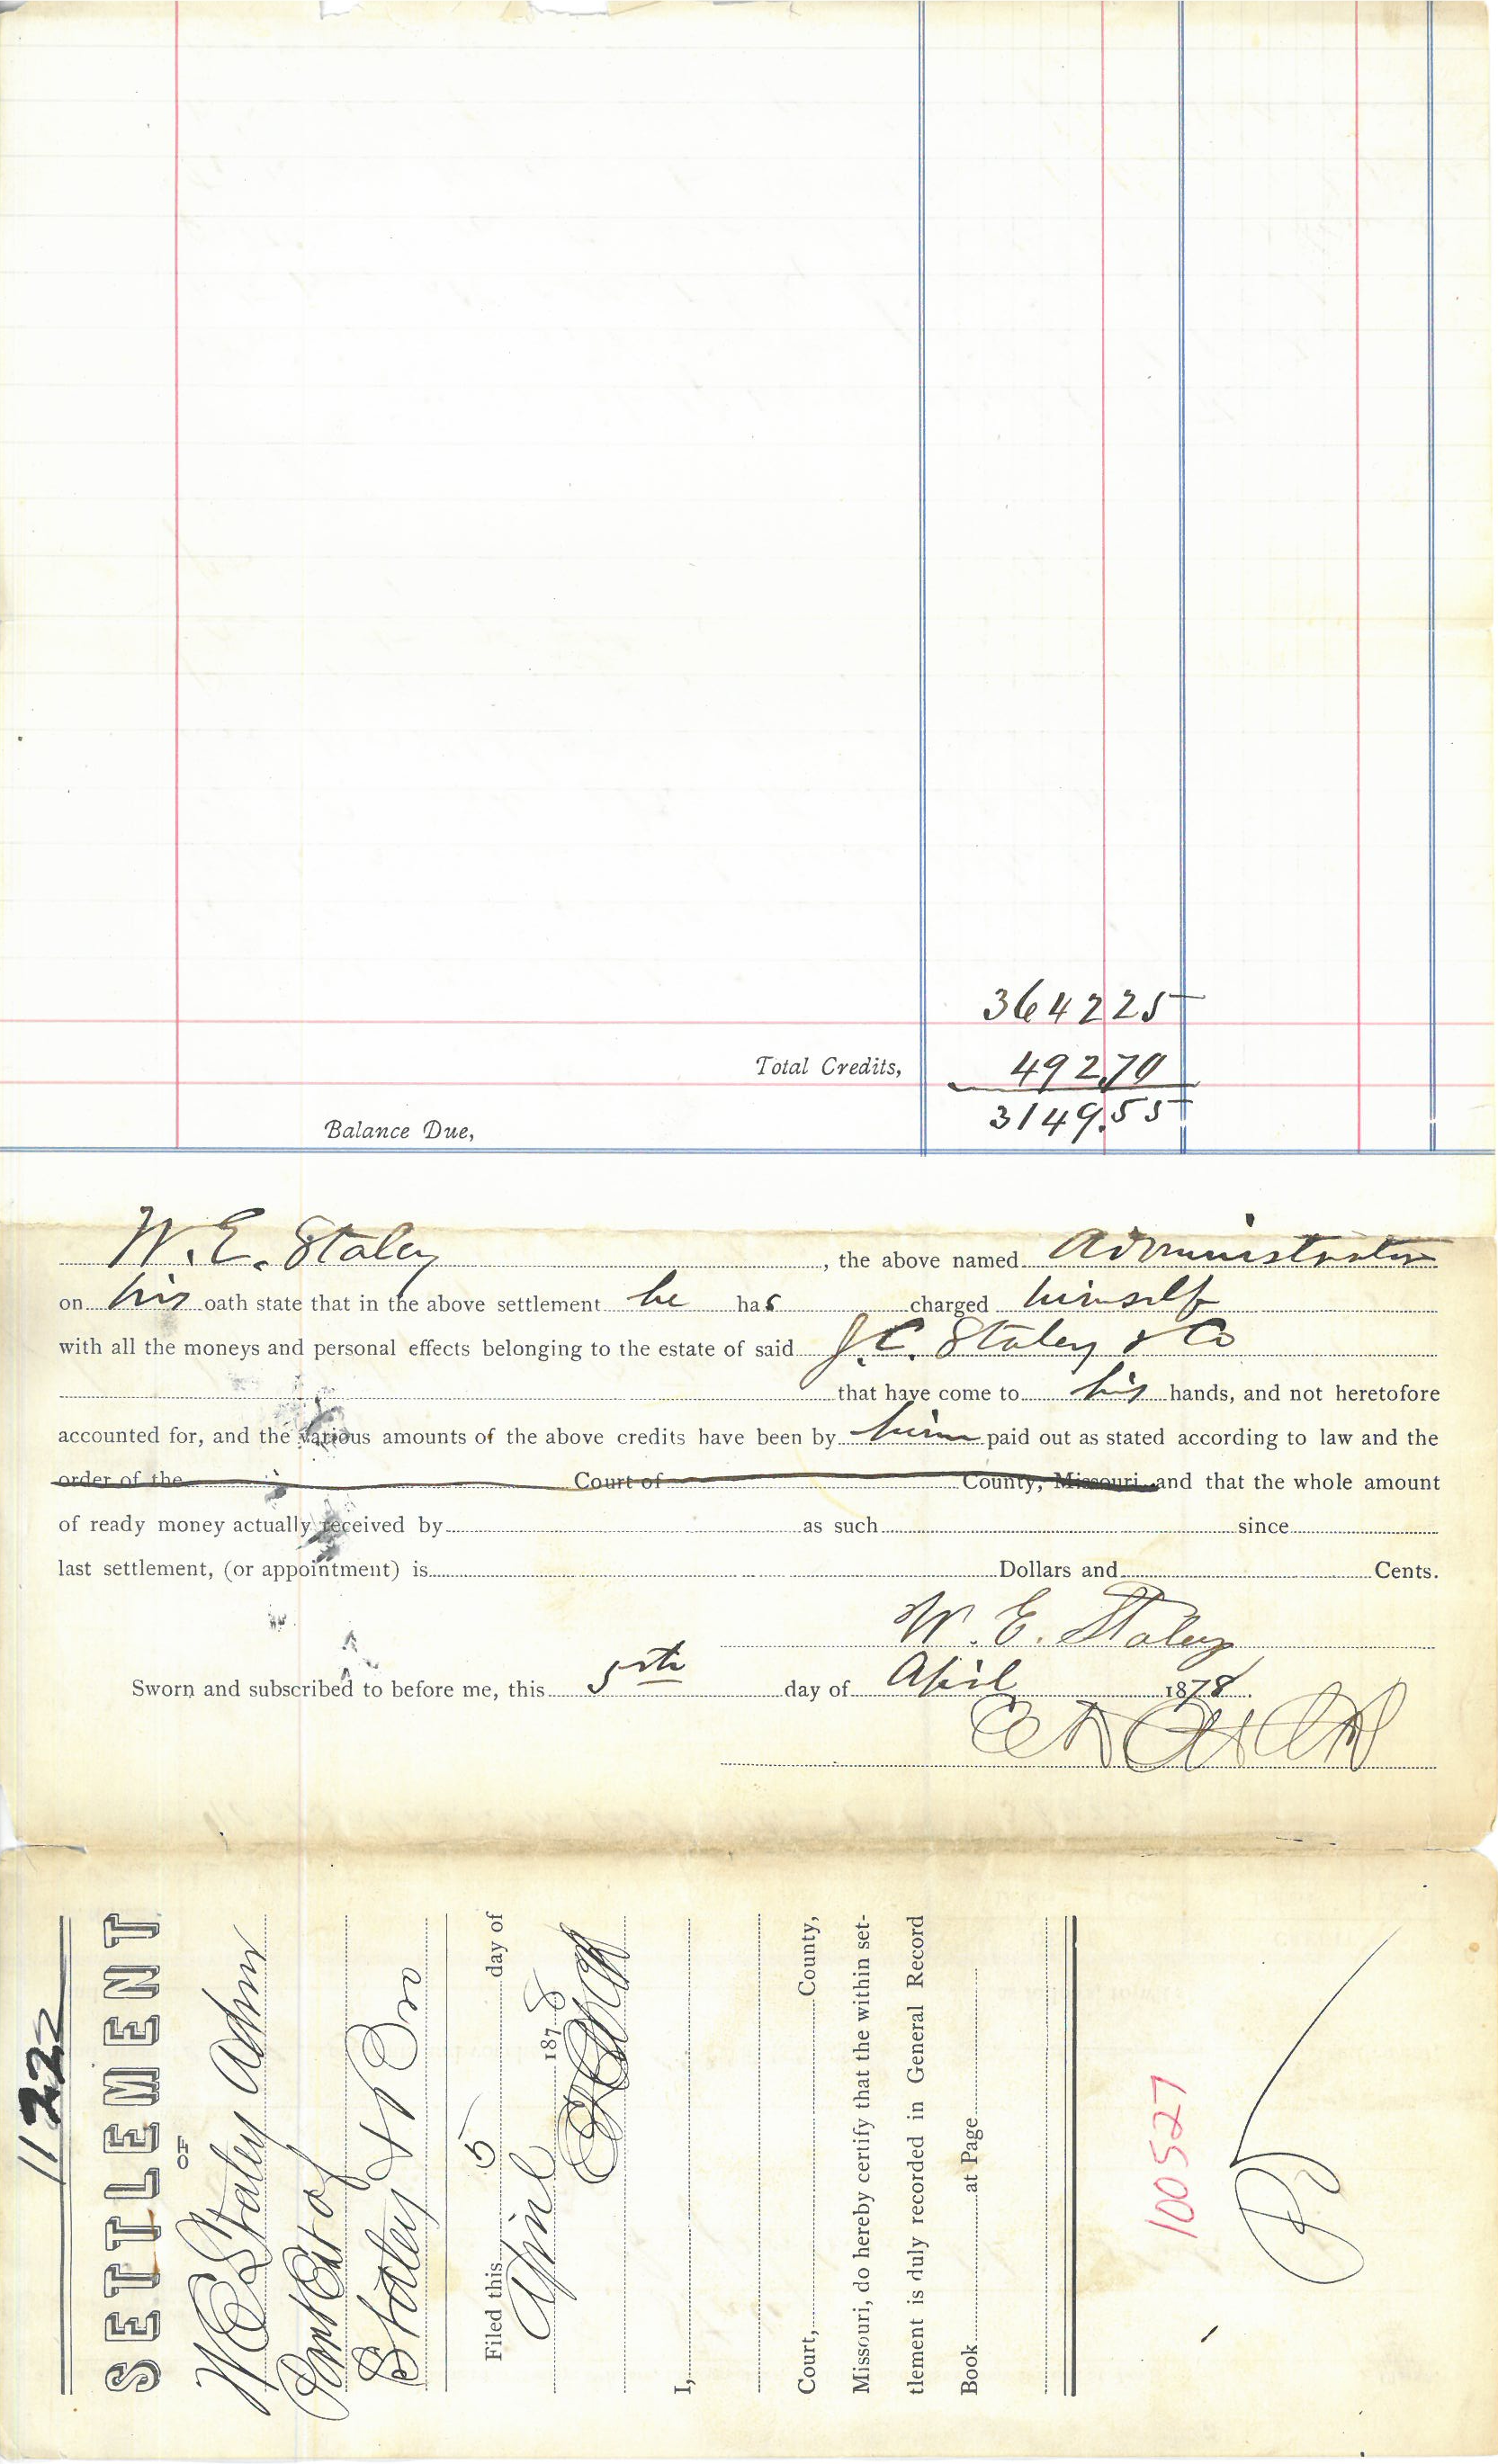 3642 25
Total Credits, 492.70
Balance Due, 3149.55
W. E. Staley, the above named Administrator
on his oath state that in the above settlement he has charged himself
with all the moneys and personal effects belonging to the estate of said J. C. Staley & Co
that have come to his hands, and not heretofore
accounted for, and the various amounts of the above credits have been by him paid out as stated according to law and the
order of the Court of County, Missouri and that the whole amount
of ready money actually received by as such since
last settlement, (or appointment) is Dollars and Cents.
W. E. Staley
Sworn and subscribed to before me, this 5th day of April 1878.
1122
SETTLEMENT
OF
W E Staley Admr
Part Est of
Staley & Bro
Filed this 5 day of
April 1878
I,
Court, County,
Missouri, do hereby certify that the within set-
tlement is duly recorded in General Record
Book at Page
100527